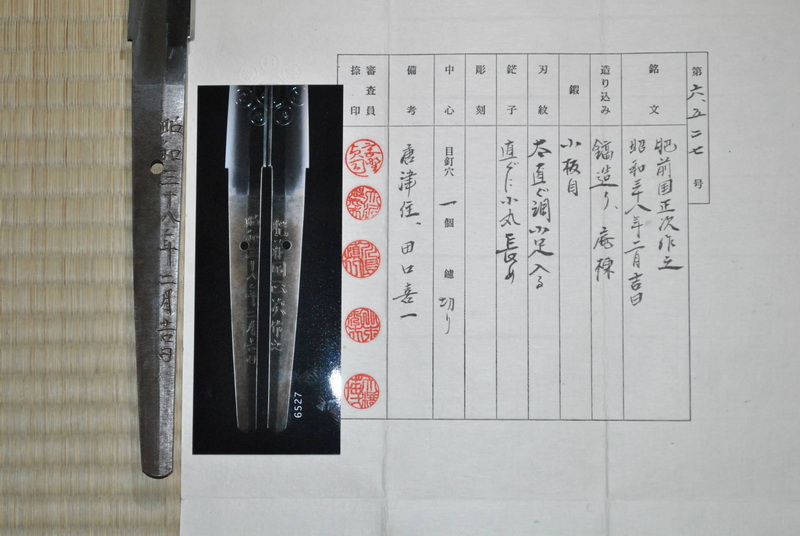 第六、五二七号
銘文
肥前国正次作之
昭和三十八年二月吉日
造り込み
鎬造り、庵棟
鍛
小板目
刃紋
直ぐ調小足入る
鋩子
直ぐに小丸長め
彫刻
中心
目釘穴 一個 鑢 切り
備考
唐津住、田口喜一
審査員
捺印
肥前国正次作之
昭和三十八年二月吉日
6527
昭和三十八年二月吉日